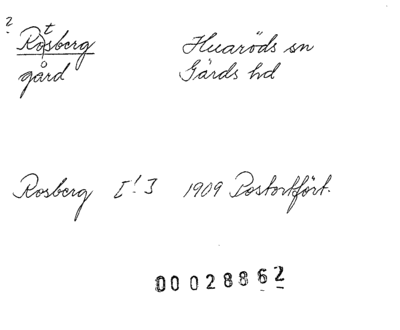 ?
t
Rosberg Huaröds sn
gård Gärds hd
Rosberg I!3 1909 Postortfört.
00028862